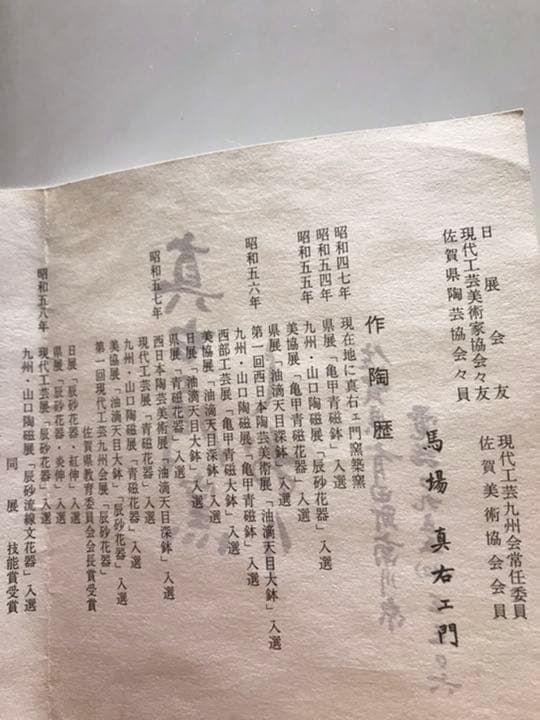 日展会友
現代工芸美術家協会々友
佐賀県陶芸協会々員
現代工芸九州会常任委員
佐賀美術協会会員
馬場 真右エ門
作陶歴
昭和四七年 現在地に真右ェ門窯築窯
昭和五四年 県展「亀甲青磁鉢」入選
昭和五五年 九州・山口陶磁展「辰砂花器」入選
美協展「亀甲青磁花器」入選
県展「油滴天目深鉢」入選
昭和五六年 第一回西日本陶芸美術展「油滴天目大鉢」入選
九州・山口陶磁展「亀甲青磁鉢」入選
西部工芸展「亀甲青磁大鉢」入選
美協展「油滴天目深鉢」入選
日展「油滴天目大鉢」入選
昭和五七年 県展「青磁花器」入選
西日本陶芸美術展「油滴天目深鉢」入選
現代工芸展「青磁花器」入選
九州・山口陶磁展「青磁花器」入選
美協展「油滴天目大鉢」「辰砂花器」入選
第一回現代工芸九州会展「辰砂花器」
佐賀県教育委員会会長賞受賞
日展「辰砂花器・紅伸」入選
県展「辰砂花器・炎伸」入選
昭和五八年 現代工芸展「辰砂花器」入選
九州・山口陶磁展「辰砂流線文花器」入選
同展 技能賞受賞